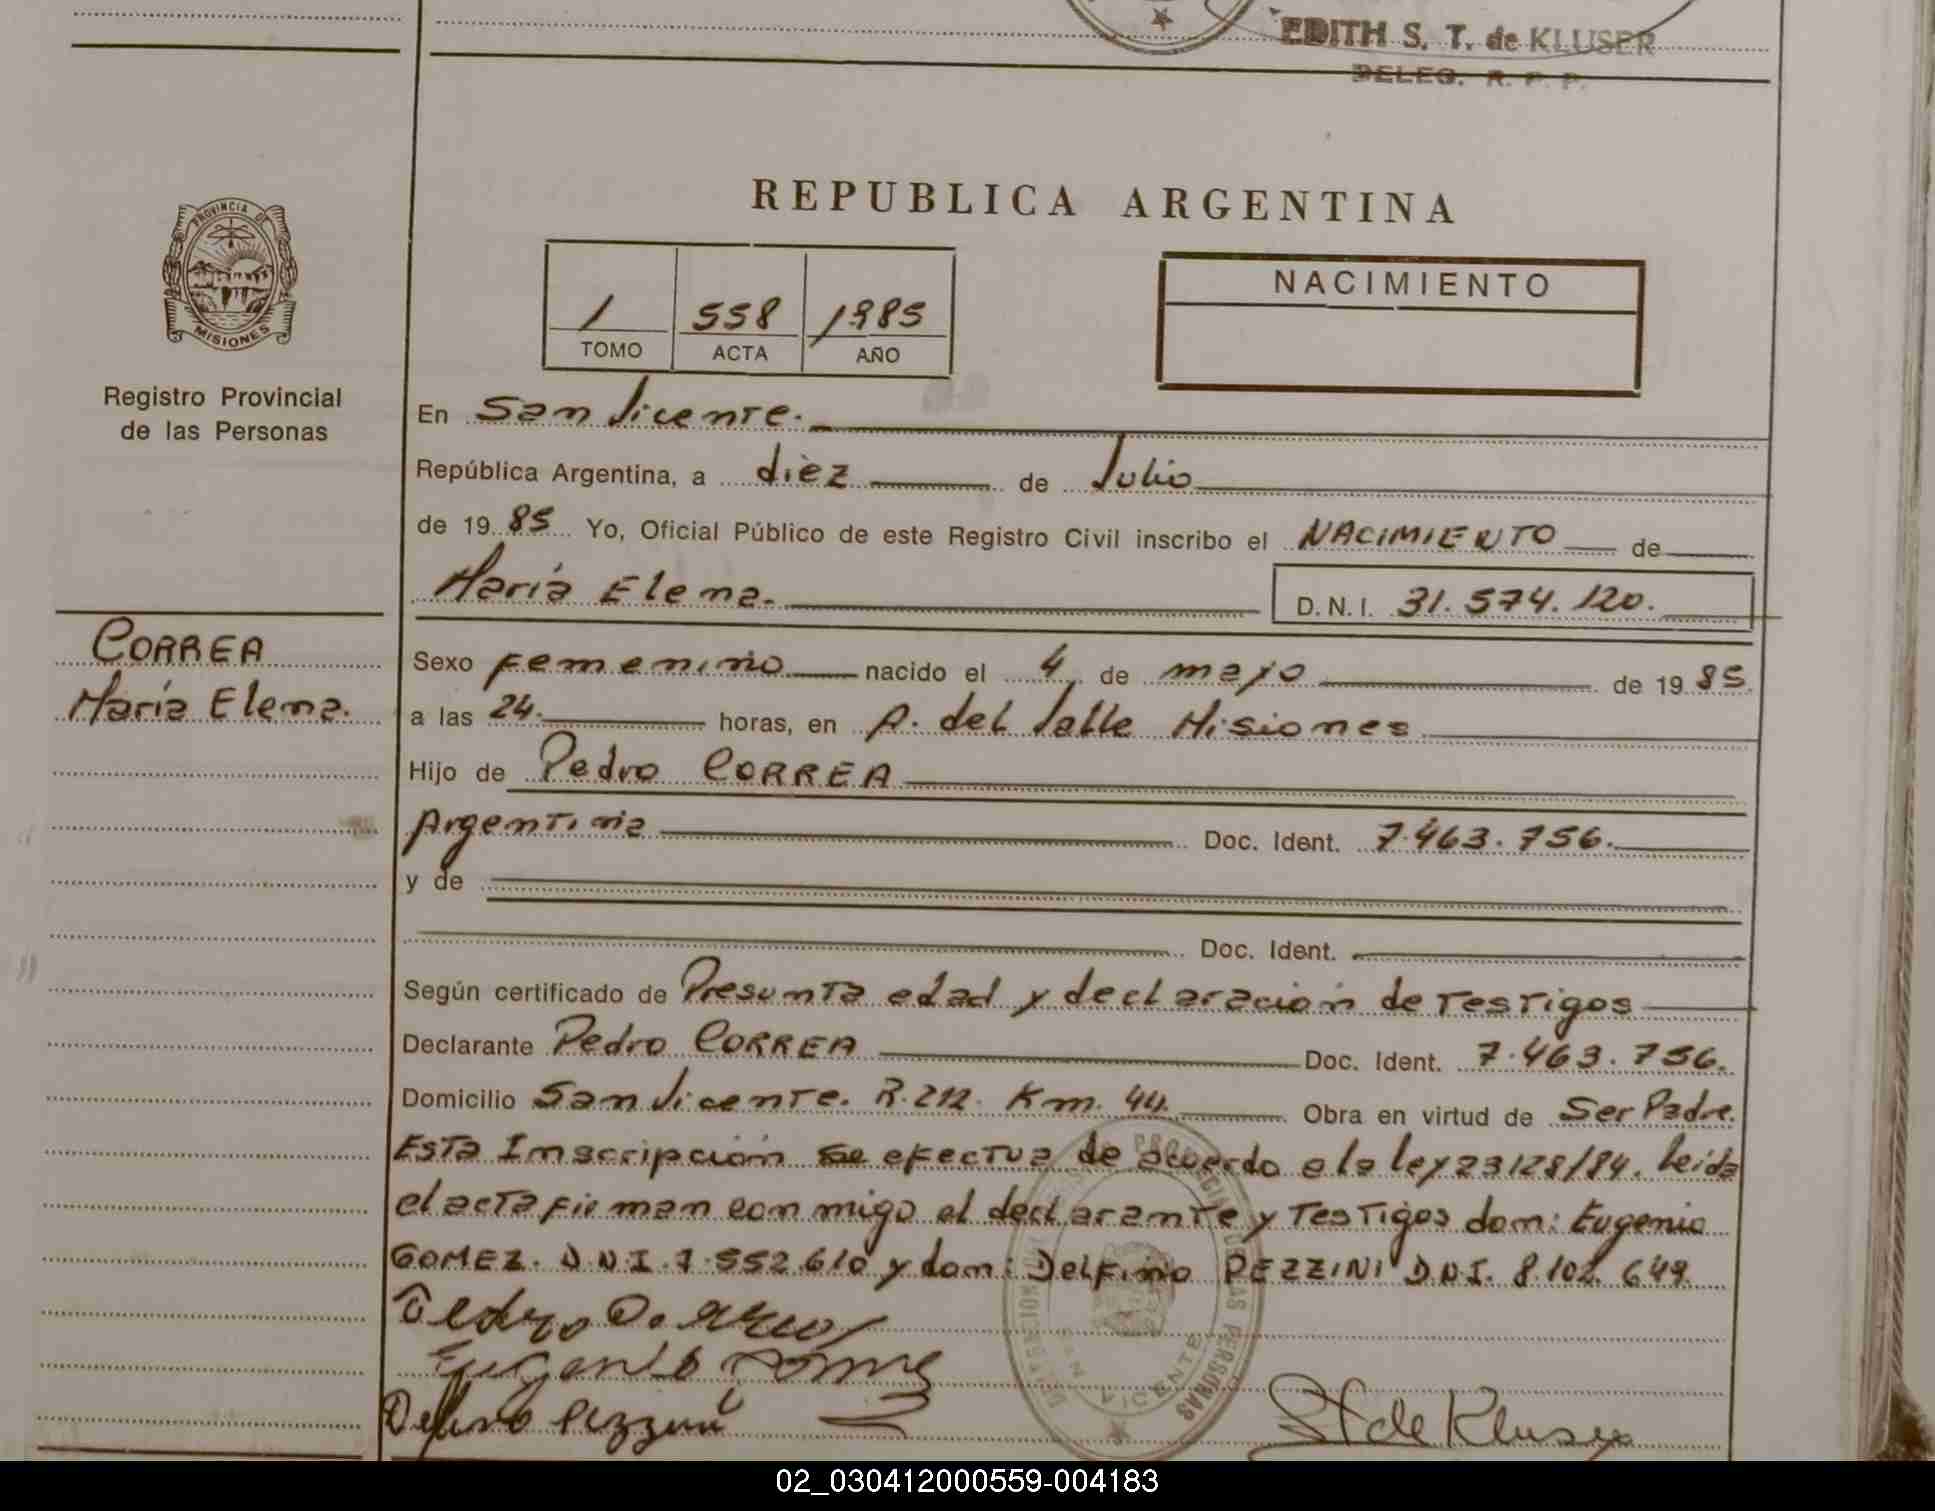 EDITH S. T. de KLUSER
DELEG. R. P. P.
REPUBLICA ARGENTINA
PROVINCIA DE
MISIONES
Registro Provincial
de las Personas
1 558 1985
TOMO ACTA AÑO
NACIMIENTO
En San Vicente.
República Argentina, a diez de Julio
de 1985 Yo, Oficial Público de este Registro Civil inscribo el NACIMIENTO de
María Elena. D.N.I. 31.574.120.
CORREA
María Elena.
Sexo Femenino nacido el 4 de mayo de 1985.
a las 24. horas, en A. del Valle Misiones
Hijo de Pedro CORREA
Argentina Doc. Ident. 7.463.756.
y de
Doc. Ident.
Según certificado de Presunta edad y declaración de testigos
Declarante Pedro CORREA Doc. Ident. 7.463.756.
Domicilio San Vicente. R.212. Km. 44. Obra en virtud de Ser Padre.
Esta Inscripción se efectua de acuerdo a la ley 23128/84. Leida
el acta firman conmigo el declarante y testigos don: Eugenio
GOMEZ. D.N.I. 7.552.610 y don: Delfino PEZZINI D.N.I. 8.102.649
Eugenio Gomez
Delfino Pezzini
ST de Kluser
SAN VICENTE
02_030412000559-004183